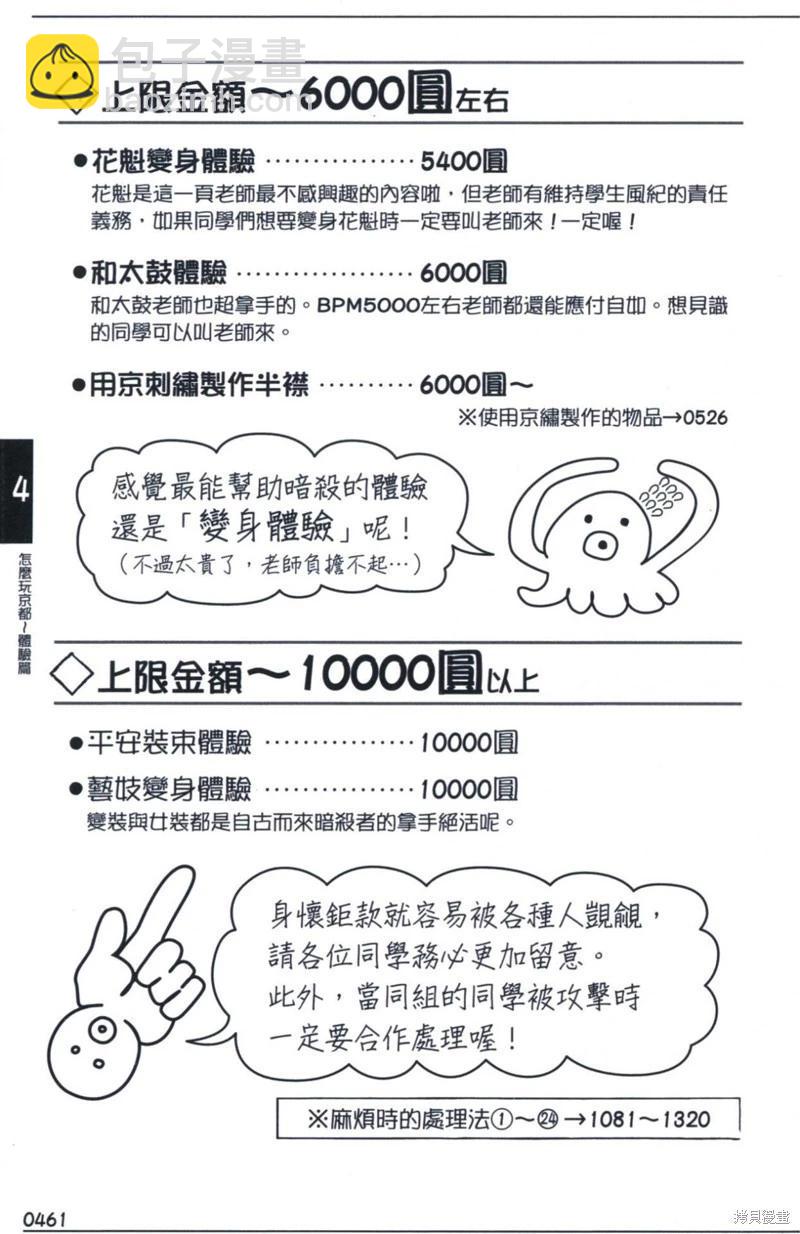 包子漫畫
baozimh.com
上限金額～6000圓左右
●花魁變身體驗 ················ 5400圓
花魁是這一頁老師最不感興趣的內容啦，但老師有維持學生風紀的責任
義務，如果同學們想要變身花魁時一定要叫老師來！一定喔！
●和太鼓體驗 ··················· 6000圓
和太鼓老師也超拿手的。BPM5000左右老師都還能應付自如。想見識
的同學可以叫老師來。
●用京刺繡製作半襟 ·········· 6000圓～
※使用京繡製作的物品→0526
感覺最能幫助暗殺的體驗
還是「變身體驗」呢！
（不過太貴了，老師負擔不起…）
4
怎麼玩京都～體驗篇
◇上限金額～10000圓以上
●平安裝束體驗 ················ 10000圓
●藝妓變身體驗 ················ 10000圓
變裝與女裝都是自古而來暗殺者的拿手絕活呢。
身懷鉅款就容易被各種人覬覦，
請各位同學務必更加留意。
此外，當同組的同學被攻擊時
一定要合作處理喔！
※麻煩時的處理法①～㉔→1081～1320
0461
拷貝漫畫